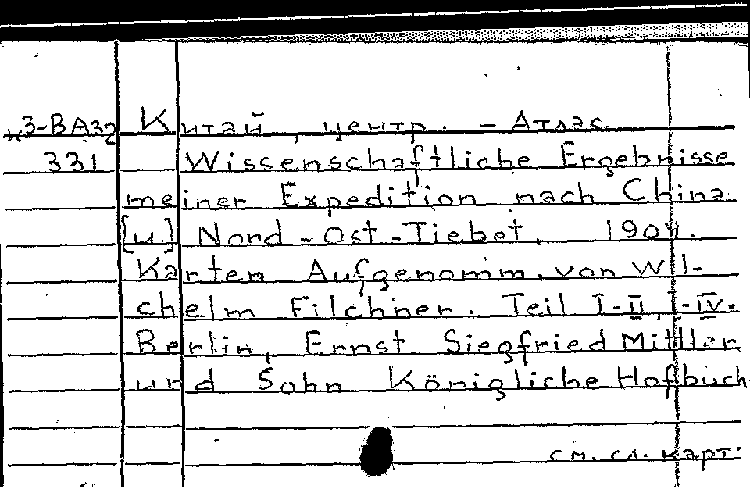 3-ВА32 Китай, центр. - Атлас
331 Wissenschaftliche Ergebnisse
meiner Expedition nach China
[u] Nord-Ost-Tiebet, 1904.
Karten Aufgenomm. von Wil-
chelm Filchner. Teil I-II, I-IV.
Berlin, Ernst Siegfried Mittler
und Sohn Königliche Hofbuch
см. сл. карт.